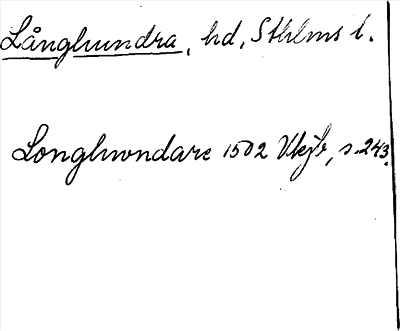 Långhundra, hd, Sthlms l.
Longhwndare 1502 Vkjb, s. 243.